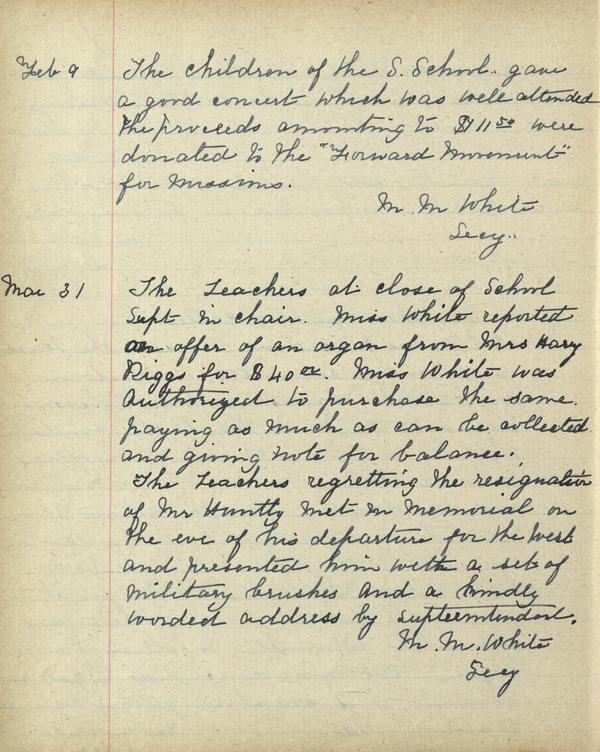 Feb 9 The children of the S. School. gave
a good concert which was well attended
the proceeds amounting to $11 50 were
donated to the "Forward Movement"
for missions.
M. M White
Secy.
Mar 31 The Teachers at close of School
Supt in chair. Miss White reported
an offer of an organ from Mrs Hary
Riggs for $40 00. Miss White was
authorized to purchase the same.
paying as much as can be collected
and giving note for balance.
The Teachers regretting the resignation
of Mr Huntly met in Memorial on
the eve of his departure for the West
and presented him with a set of
military brushes and a kindly
worded address by Supterintendent.
M. M. White
Secy